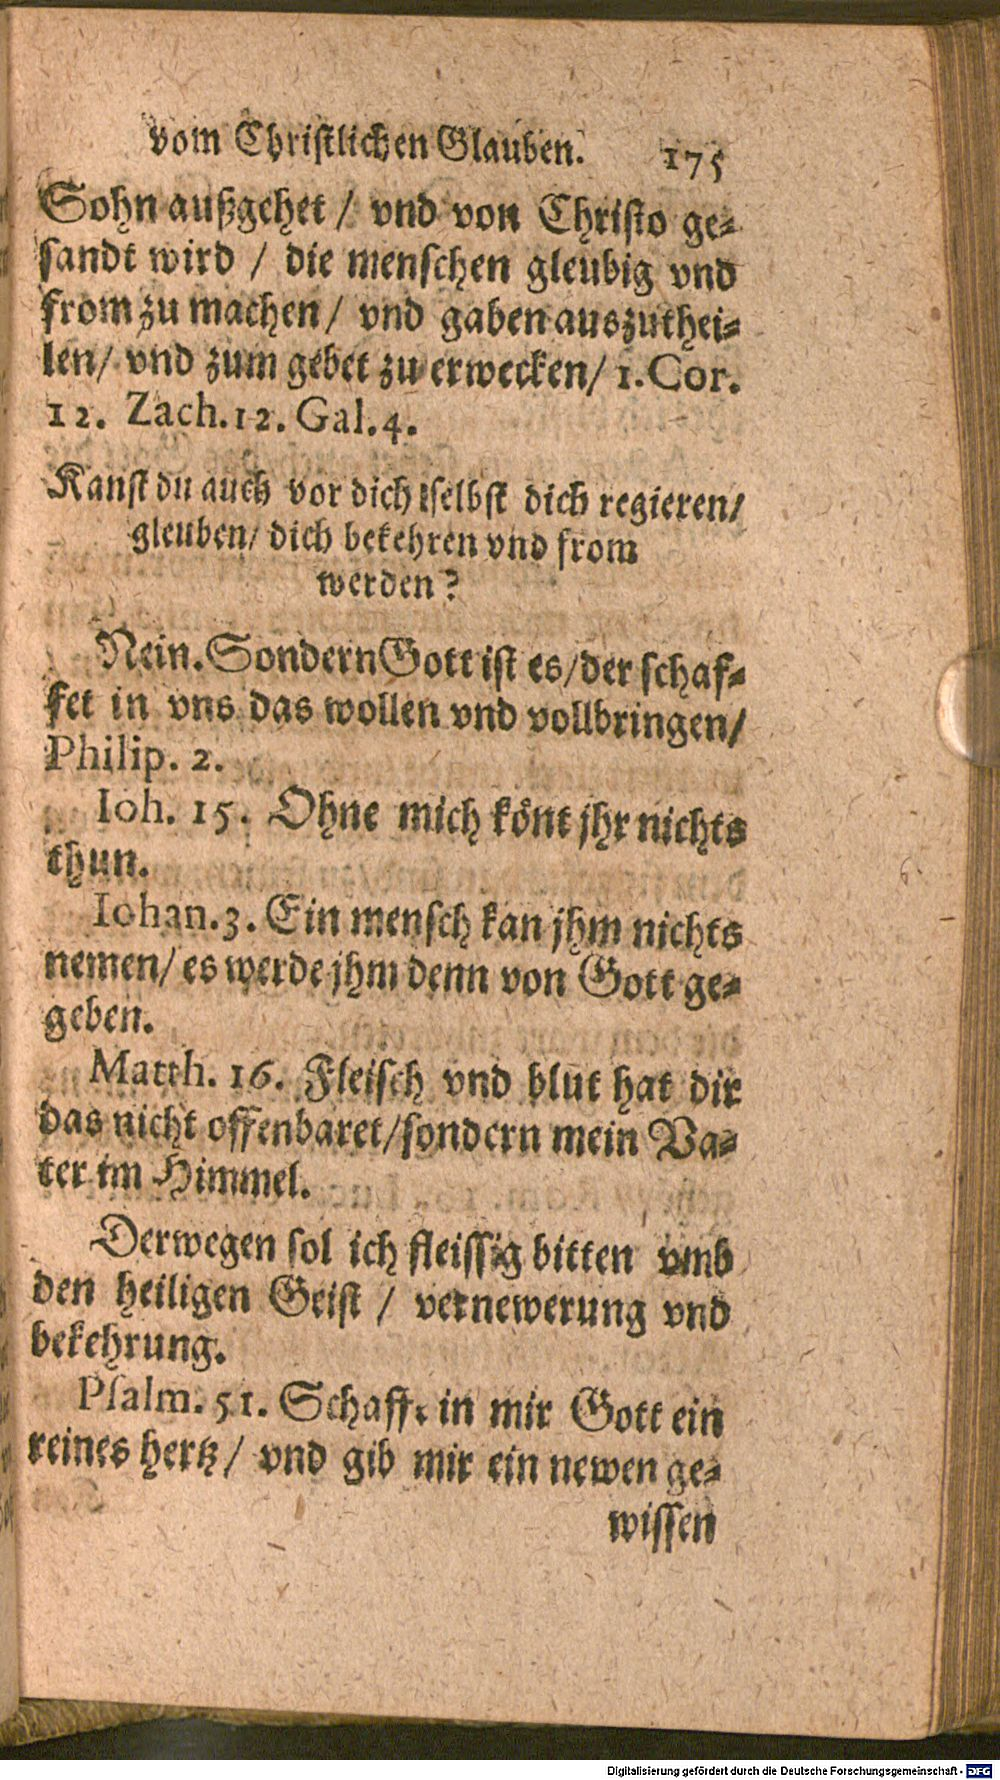 vom Christlichen Glauben. 175
Sohn außgehet / vnd von Christo ge-
sandt wird / die menschen gleubig vnd
from zu machen / vnd gaben auszuthei-
len / vnd zum gebet zu erwecken / 1. Cor.
12. Zach. 12. Gal. 4.
Kanst du auch vor dich selbst dich regieren /
gleuben / dich bekehren vnd from
werden?
Nein. Sondern Gott ist es / der schaf-
fet in vns das wollen vnd vollbringen /
Philip. 2.
Ioh. 15. Ohne mich könt jhr nichts
thun.
Iohan. 3. Ein mensch kan jhm nichts
nemen / es werde jhm denn von Gott ge-
geben.
Matth. 16. Fleisch vnd blut hat dir
das nicht offenbaret / sondern mein Va-
ter im Himmel.
Derwegen sol ich fleissig bitten vmb
den heiligen Geist / vernewerung vnd
bekehrung.
Psalm. 51. Schaffe in mir Gott ein
reines hertz / vnd gib mir ein newen ge-
wissen
Digitalisierung gefördert durch die Deutsche Forschungsgemeinschaft - DFG